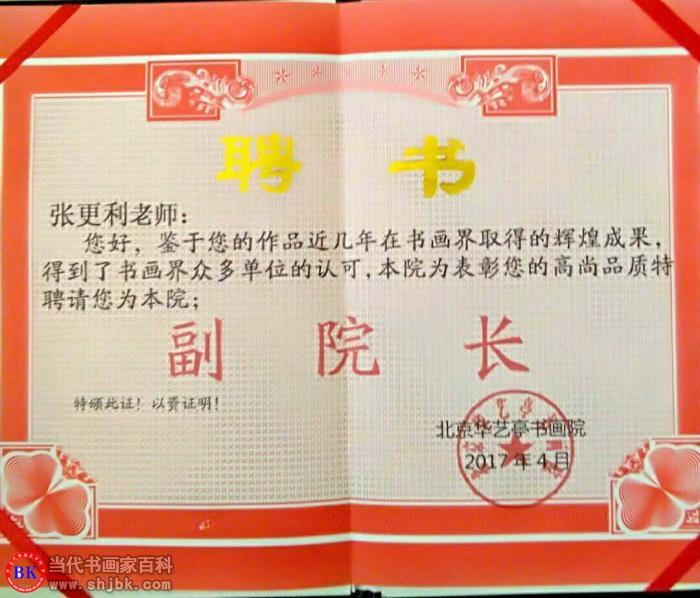 聘书
张更利老师：
您好，鉴于您的作品近几年在书画界取得的辉煌成果，
得到了书画界众多单位的认可，本院为表彰您的高尚品质特
聘请您为本院；
副院长
特颁此证！以资证明！
北京华艺亭书画院
2017年4月
BK
当代书画家百科
www.shjbk.com